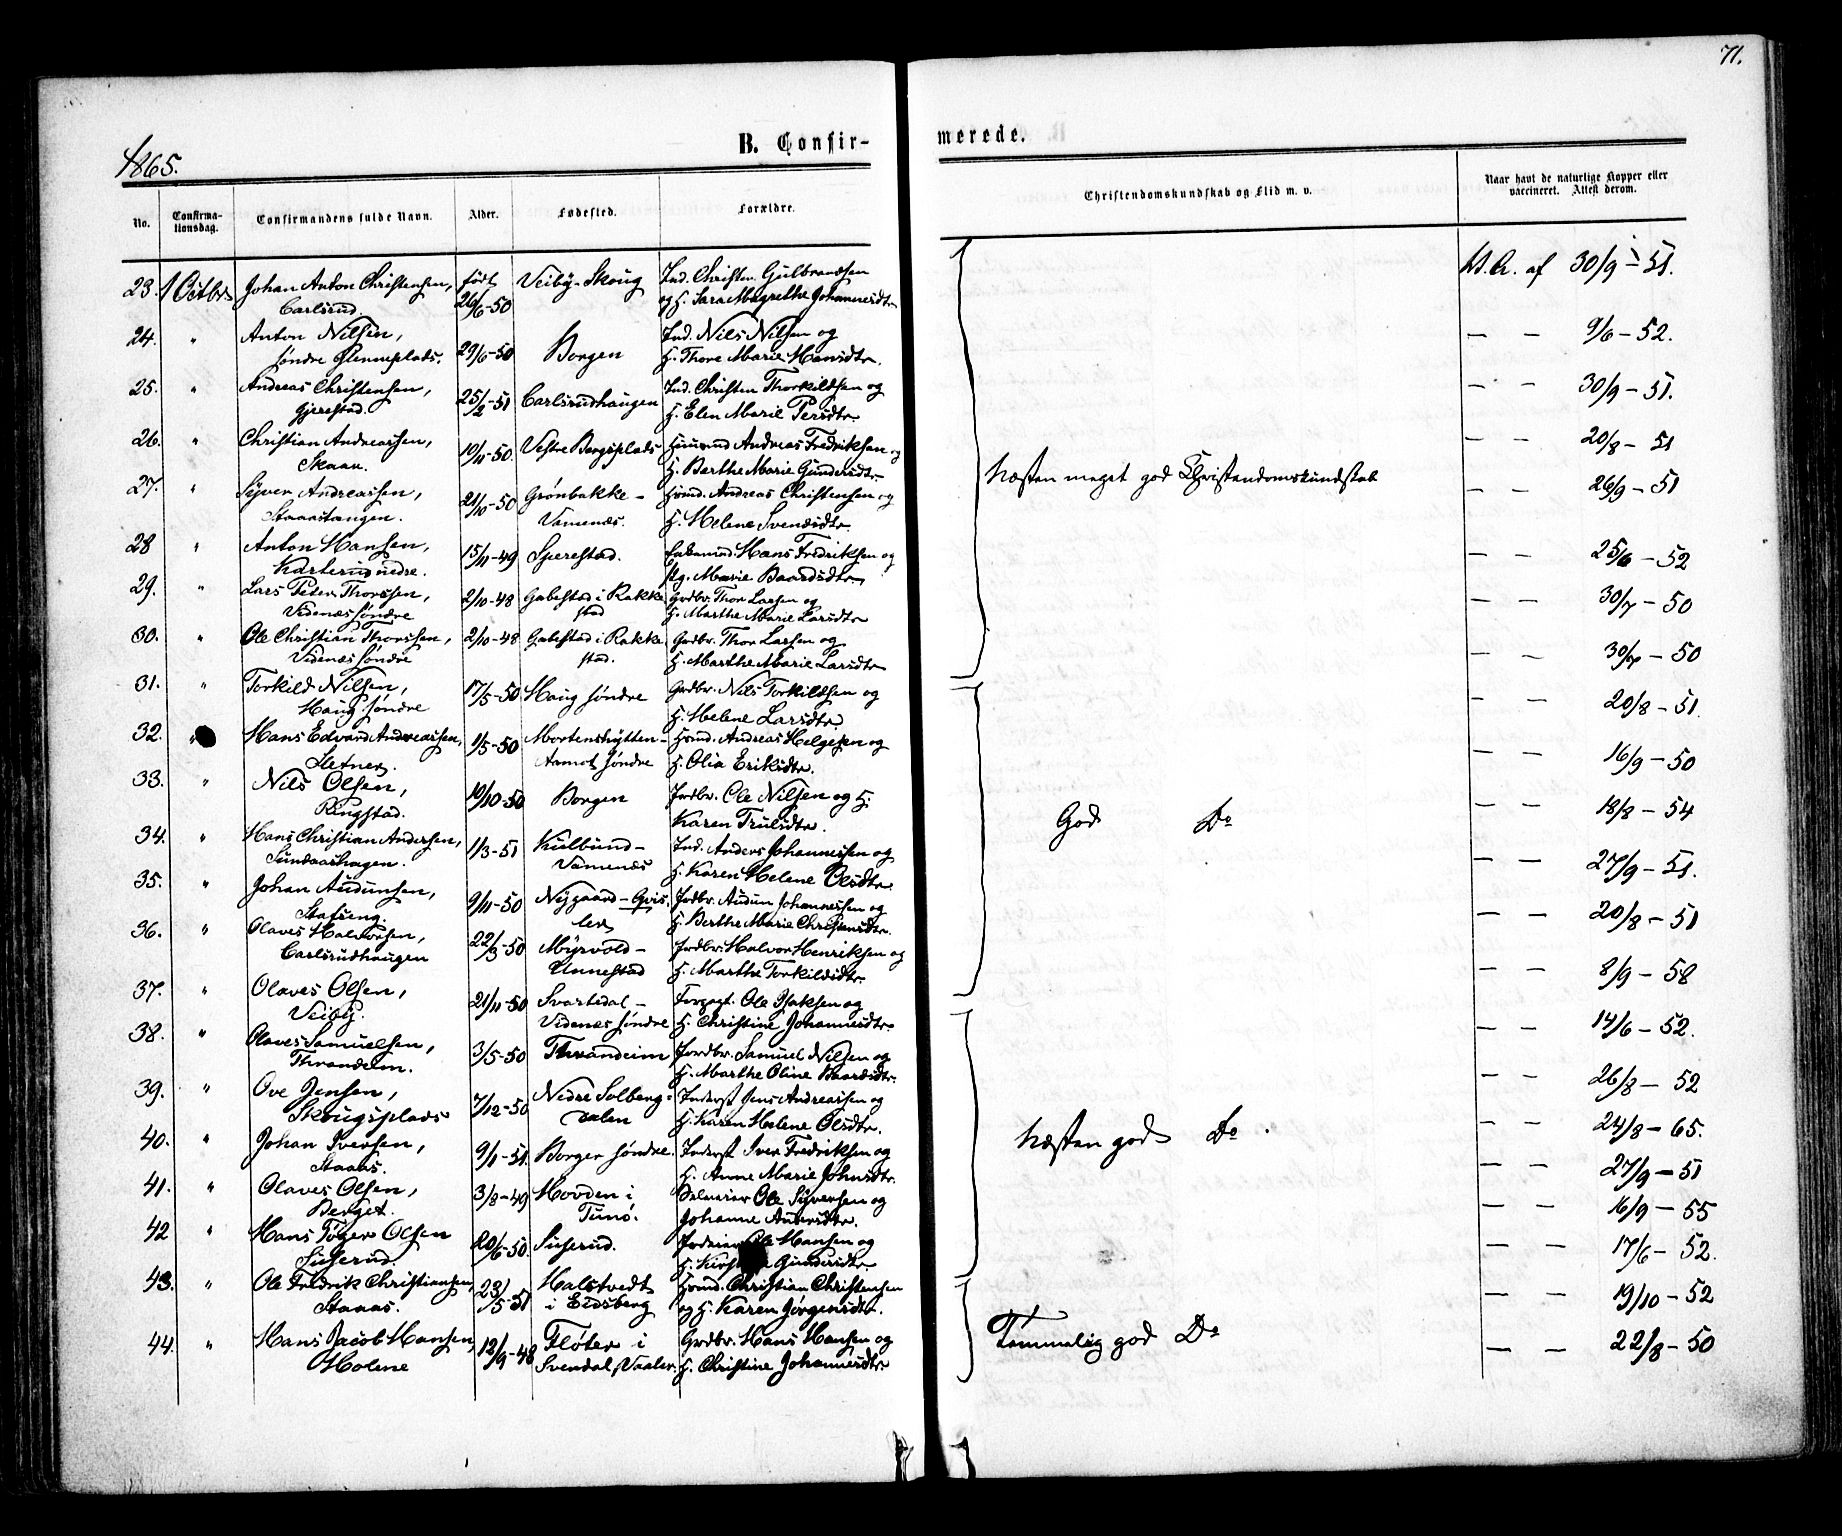 71.
1865.
B. Confir-
merede.
No.
Confirma-
tionsdag.
Confirmandens fulde Navn.
Alder.
Fødested.
Forældre.
Christendomskundskab og Flid m. v.
Naar havt de naturlige Kopper eller
vaccineret. Attest derom.
23. 1 Octbr Johan Anton Christensen, født Veiby-Skoug Ind. Christen Gulbrandsen
Carlsrud. 26/6-50 og H. Sara Magrethe Johannesdtr
V.A. af 30/9-51.
24. " Anton Nilsen, Ind. Nils Nilsen og
søndre Glenneplads. 29/6-50 Borgen H. Thore Marie Hansdtr.
— — 9/6-52.
25. " Andreas Christensen, Ind. Christen Thorkildsen og
Gjerestad. 25/2-51 Carlsrudhaugen H. Elen Marie Persdtr
— — 30/9-51.
26. " Christian Andreassen, 10/11-50. Vestre Borgsplads Huusmd Andreas Fredriksen og
Skaan. H. Berthe Marie Gundersdtr
— — 20/8-51
27. " Syver Andreassen, 21/10-50 Grønbakke- Hsmd. Andreas Christensen og
Staastangen. Vamenæs. H. Helene Svendsdtr.
— — 26/9-51
28 " Anton Hansen, 15/11-49 Sperestad. Enkemd. Hans Fredriksen og
Karterud nedre. Pg. Marie Baardsdtr
— — 25/6-52
29. " Lars Peter Thorssen, 2/10-48 Gabestad i Rakke Grdbr. Thor Larsen og
Videnæs søndre stad H. Marthe Marie Larsdtr
— — 30/7-50
30. " Ole Christian Thorssen, 2/10-48 Gabestad i Rakke Grdbr. Thor Larsen og
Videnæs søndre stad. H. Marthe Marie Larsdtr
— — 30/7-50
Næsten meget god Christendomskundskab
31. " Torkild Nilsen, 17/5-50 Haug søndre Grdbr. Nils Torkildsen og
Haug søndre H. Helene Larsdtr
— — 20/8-51
32. " Hans Edvard Andreassen, 1/5-50 Mortenshytten- Hsmd. Andreas Helgesen og
Sletner. Aamot søndre H. Olia Eriksdtr.
— — 16/9-50
33. " Nils Olsen, 19/10-50 Borgen Jordbr. Ole Nilsen og H.
Ringstad. Karen Trulsdtr.
— — 18/8-54
34. " Hans Christian Andersen, 1/3-51 Kulbund- Ind. Anders Johannessen og
Sundaashagen. Vamenæs H. Karen Helene Olsdtr
— — 27/9-51.
35. " Johan Audunsen, 9/11-50 Nygaard-Qvis- Jordbr. Audun Johannessen og
Stafseng. ler H. Berthe Marie Christensdtr.
— — 20/8-51
36. " Olaves Halvorsen, 22/3-50 Myrvold- Jordbr. Halvor Henriksen og
Carlsrudhaugen Unnestad H. Marthe Torkildsdtr
— — 8/9-58
God Do
37. " Olaves Olsen, 21/11-50 Svartedal- Forpagt. Ole Isaksen og
Veiby. Videnæs søndre H. Christine Johannesdtr
— — 14/6-52.
38. " Olaves Samuelsen, 3/5-50 Thrandeim Jordbr. Samuel Nilsen og
Thrandeim. H. Marthe Oline Baardsdtr.
— — 26/8-52
39. " Ove Jensen, 7/12-50 Nedre Solberg- Inderst Jens Andreassen og
Skougsplads dalen H. Karen Helene Olsdtr.
— — 24/8-65.
40. " Johan Iversen, 9/1-51. Borger søndre. Inderst Iver Fredriksen og
Staaes. H. Anne Marie Johnsdtr.
— — 27/9-51
41. " Olaves Olsen, 3/8-49 Hovden i Selveier Ole Syversen og
Berget. Tunø. Johanne Andersdtr.
— — 16/9-55
42 " Hans Tøger Olsen 20/6-50. Suserud. Jordeier Ole Hansen og
Suserud. H. Gundersdtr.
— — 17/6-52.
Næsten god Do.
43. " Ole Fredrik Christiansen, 23/5-51 Halstvedt Hsmd. Christian Christensen
Staaas. i Eidsberg og H. Karen Jørgensdtr.
— — 19/10-52
44. " Hans Jacob Hansen, 12/9-48 Fløter i Grdbr. Hans Hansen og
Holene Svendal, Vaaler. H. Christine Johannesdtr
— — 22/8-50
Temmelig god Do